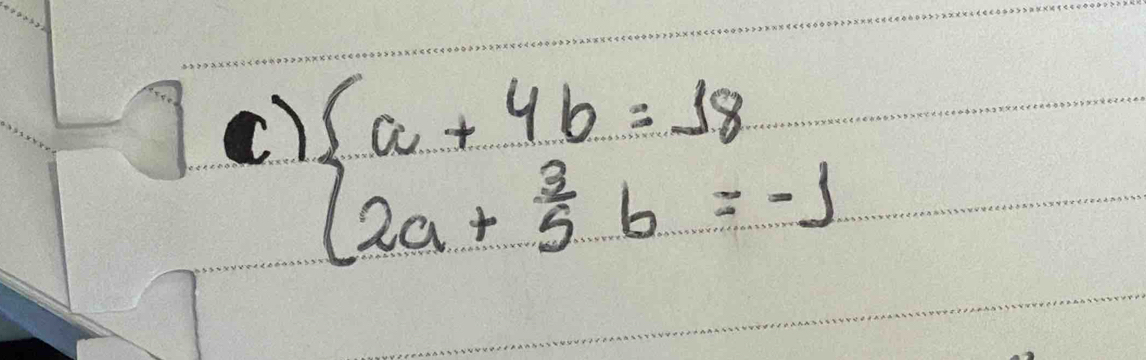 c) { a + 4b = 18
2a + 3/5 b = -1